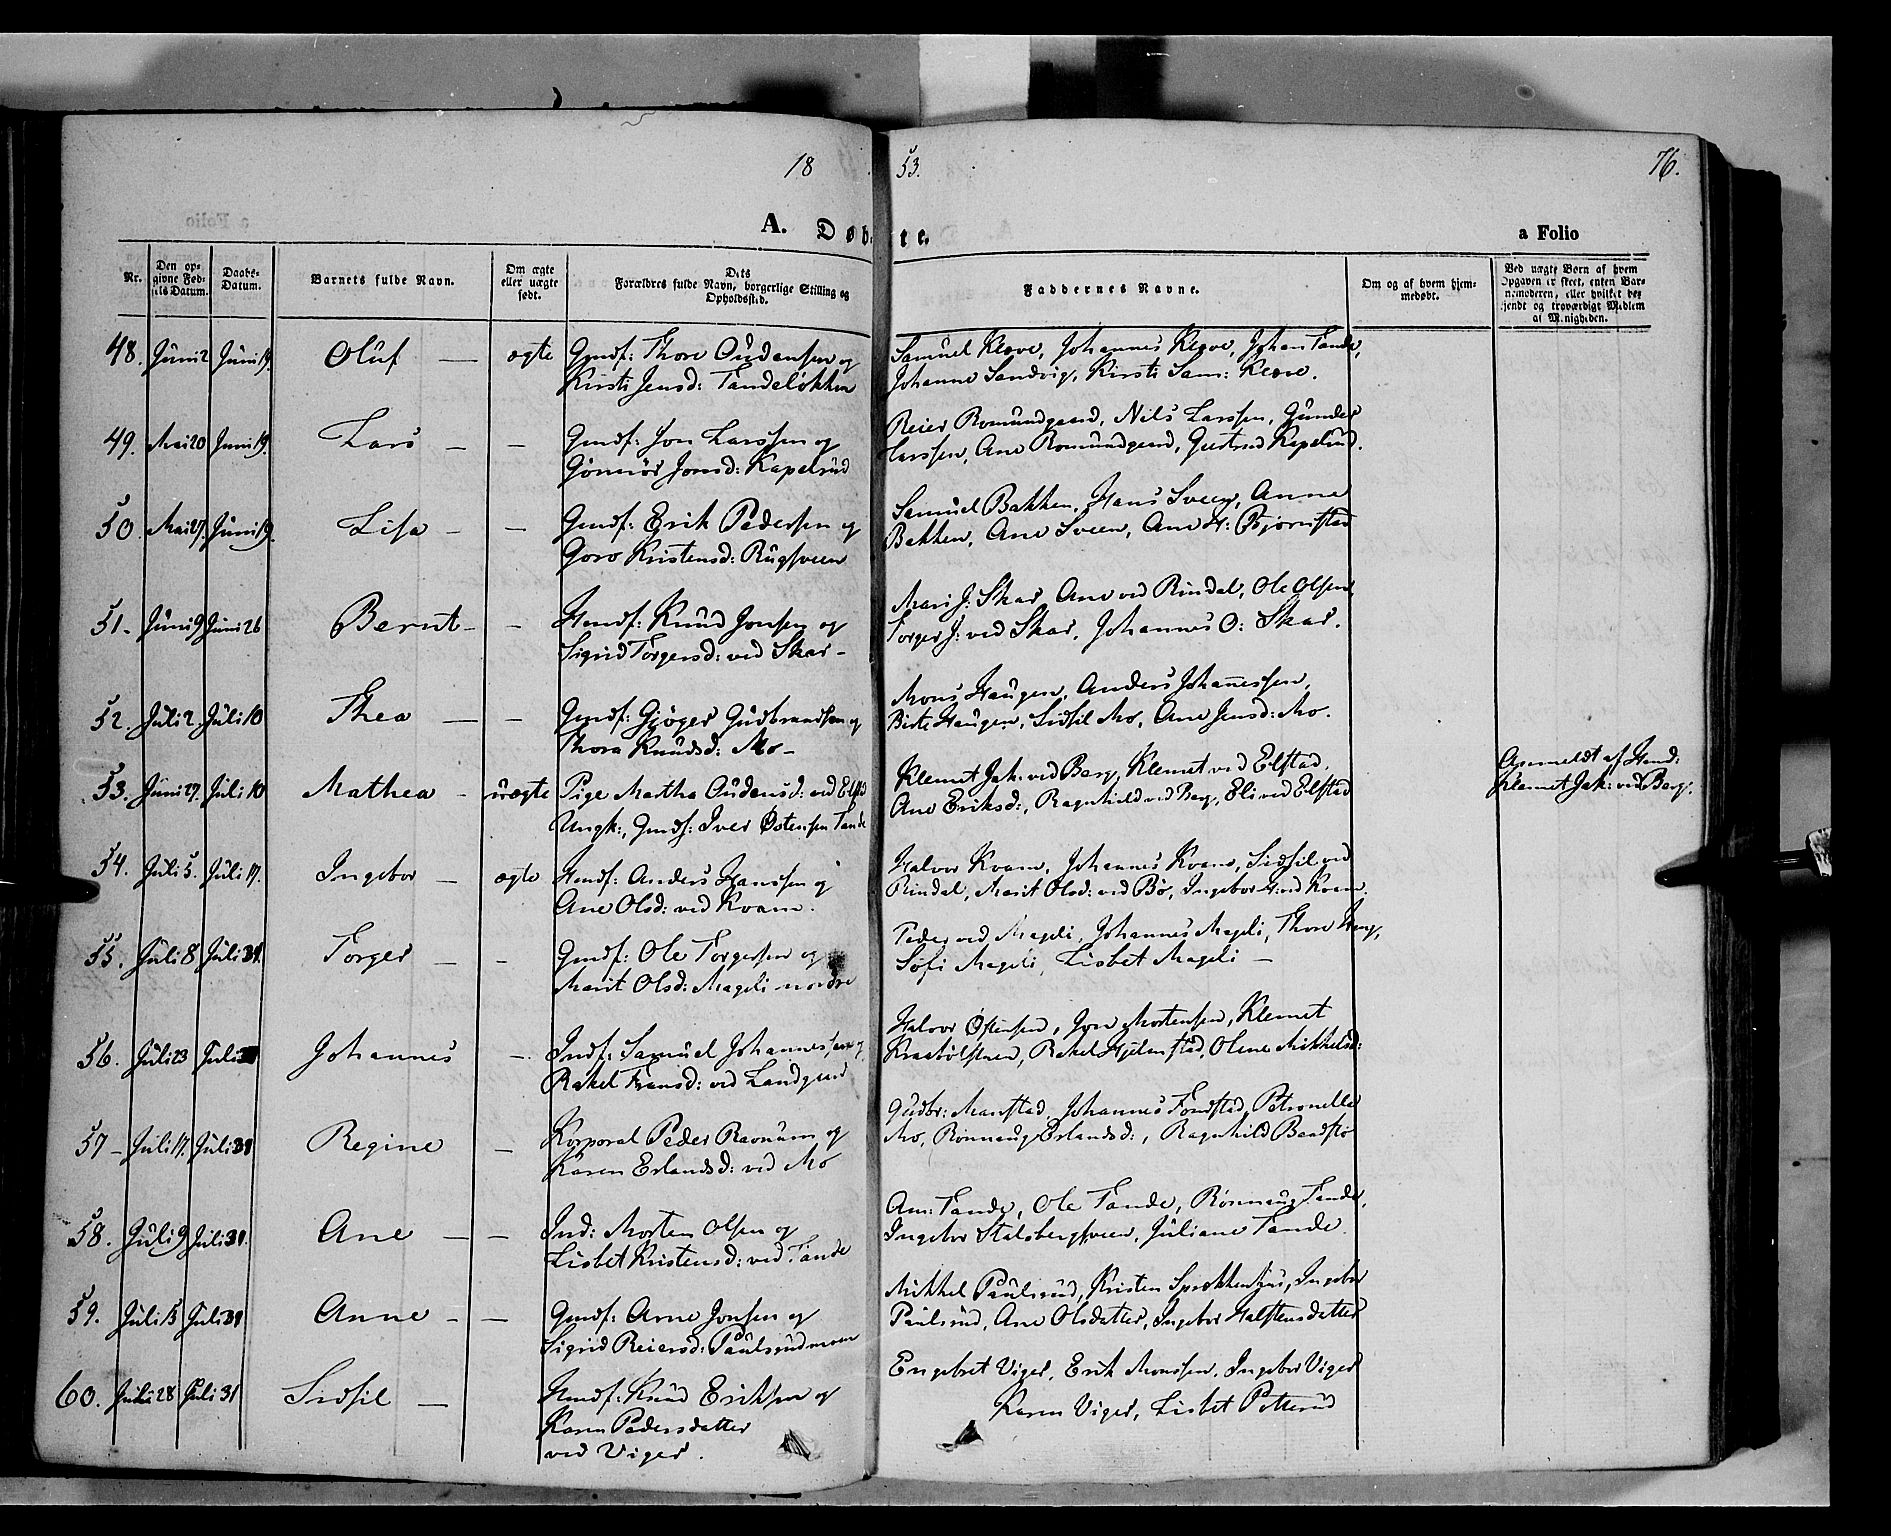 1853.
76.
A. Døbte.
a Folio
Nr.
Den opgivne Fødsels Datum.
Daabs-Datum.
Barnets fulde Navn.
Om ægte eller uægte født.
Dets Forældres fulde Navn, borgerlige Stilling og Opholdssted.
Faddernes Navne.
Om og af hvem hjemmedøbt.
Ved uægte Børn af hvem Opgaven er skeet, enten Barnemoderen, eller hvilket bekjendt og troværdigt Medlem af Menigheden.
48. Juni 2 Juni 19. Oluf — ægte Gmdf: Thore Audensen og
Kirsti Jensd: Tandeløkken
Samuel Kleve, Johannes Kleve, Johan Tande,
Johanne Sandvig, Kirsti Sam: Kleve.
49. Mai 20 Juni 19. Lars — — Gmdf: Jon Larssen og
Gunnør Jonsd: Kapelrud
Reier Romundgaard, Nils Larssen, Gunder
Larssen, Ane Romundgaard, Gertrud Kapelrud.
50. Mai 27. Juni 19. Lisa — — Gmdf: Erik Pedersen og
Goro Kristensd: Rugsveen
Samuel Bakken, Hans Sveen, Anne
Bakken, Ane Sveen, Ane H: Bjørnstad
51. Juni 9 Juni 26 Bernt — — Hmdf: Knud Jonsen og
Sigrid Torgersd: ved Skar —
Mari J: Skar, Ane ved Rindal, Ole Olsen,
Torger J: ved Skar, Johannes O: Skar.
52. Juli 2. Juli 10 Thea — — Gmdf: Gjøger Gudbrandsen og
Thora Knudsd: Mo —
Mons Haugen, Anders Johannessen,
Birte Haugen, Sidsil Mo, Ane Jensd: Mo.
53. Juni 27. Juli 10 Mathea — uægte Pige Martha Audensd: ved Elfstd
Ungk:, Gmdf: Iver Østensen Tande
Klemet Jak: ved Berg, Klemet ved Elstad,
Ane Eriksd:, Ragnhild ved Berg, Eli ved Elstad
Anmeldt af Hmd:
Klemet Jak: ved Berg.
54. Juli 5. Juli 17. Ingebor — ægte Hmdf: Anders Hansen og
Ane Olsd: ved Kvam.
Halvor Kvam, Johannes Kvam, Sidsil ved
Rindal, Marit Olsd: ved Bø, Ingebor H: ved Kvam.
55. Juli 8 Juli 31. Torger — — Gmdf: Ole Torgersen og
Marit Olsd: Mageli nordre
Peder ved Mageli, Johannes Mageli, Thore
Søfi Mageli, Lisbet Mageli —
56. Juli 23 Juli 31 Johannes — Indf: Samuel Johannessen og
Rakel Fransd: ved Landgaard
Halvor Østensen, Jon Mortensen, Klemet
Rakel Hjelmstad, Oline Mikkelsd:
57 — Juli 17. Juli 31 Regine — Korporal Peder Ravnum og
Karen Erlandsd: ved Mo
Gudbr: Manstad, Johannes Fonstad, Petronelle
Mo, Rønnaug Erlandsd:, Ragnhild
58. Juli 9 Juli 31. Ane — — Ind: Morten Olsen og
Lisbet Kristensd: ved Tande
Am: Tande, Ole Tande, Rønnaug Tande,
Ingebor Stalsbergsveen, Juliane Tande.
59. Juli 15 Juli 31 Anne — — Gmdf: Arne Jonsen og
Sigrid Reiersd: Paulsrudmoen
Mikkel Paulsrud, Kristen Sprekkenhus, Ingebor
Paulsrud, Ane Olsdatter, Ingebor Halstensdatter
60. Juli 28 Juli 31 Sidsil — Hmdf: Knud Eriksen og
Karen Pedersdatter
ved Viger.
Engebret Viger, Erik Monssen, Ingebor Viger
Karen Viger, Lisbet Petterud